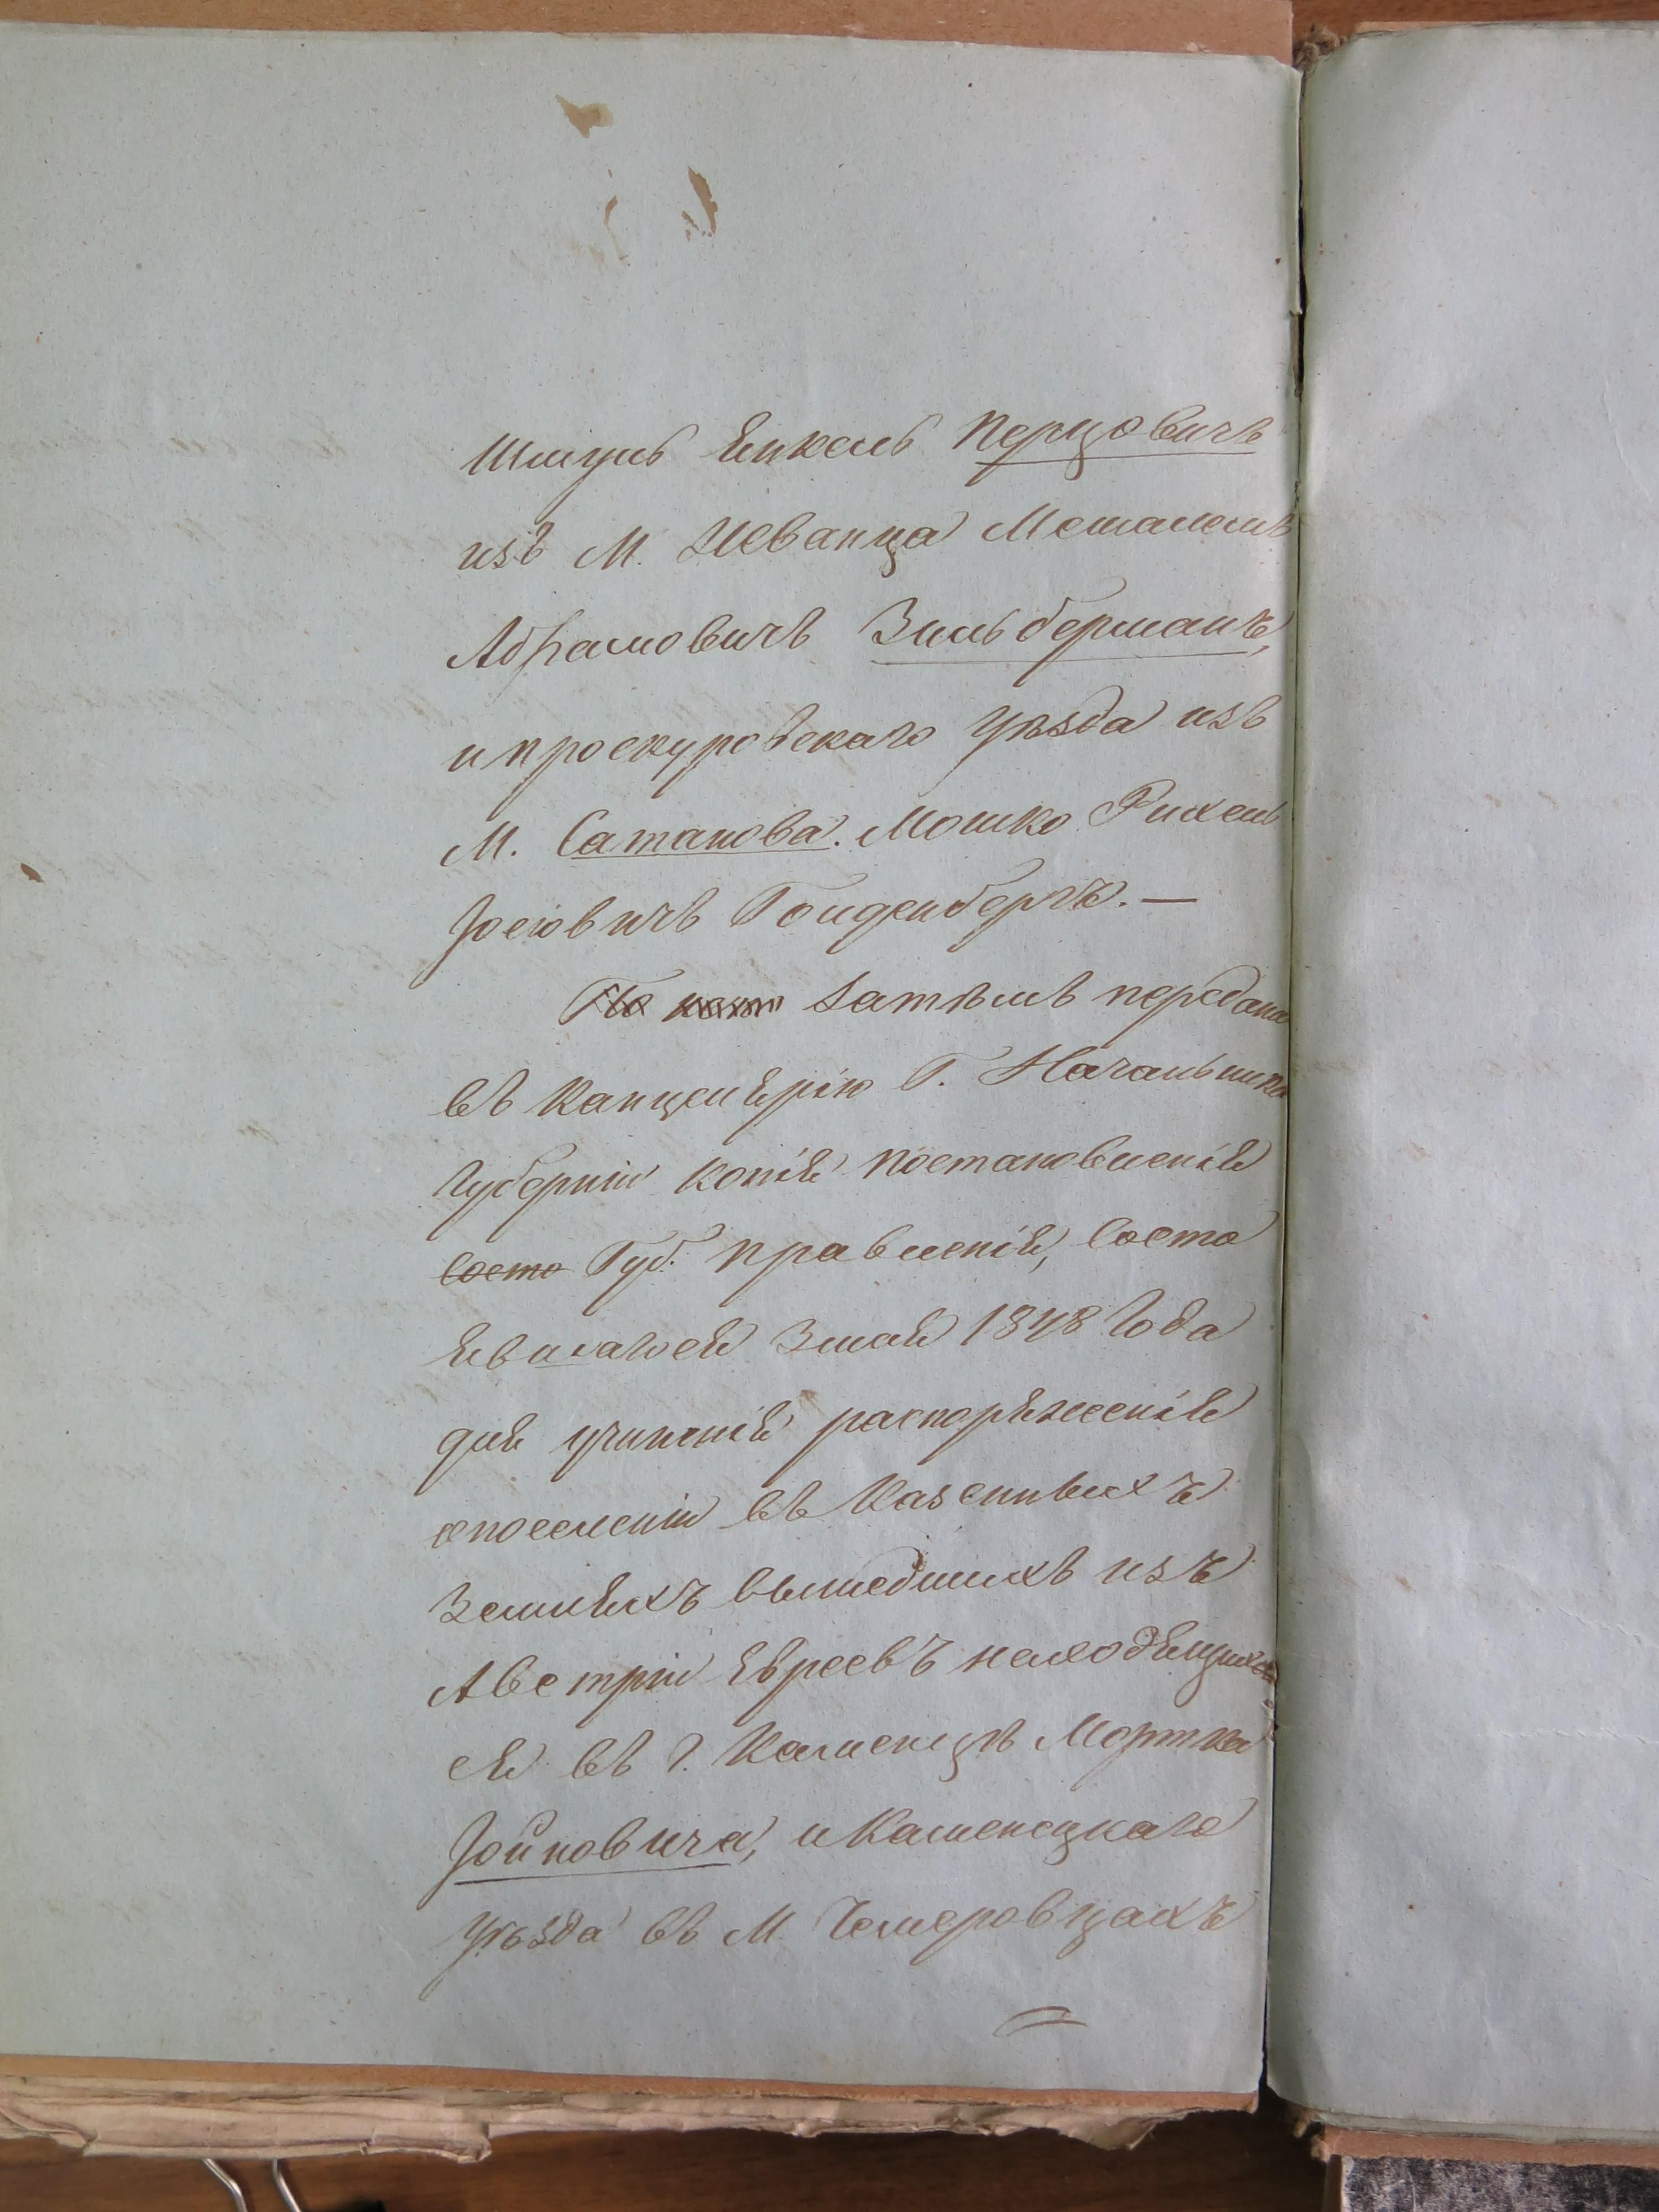 Шмуль Янкель Перцовичъ
изъ М. Жванца Мешалемъ
Абрамовичъ Зильберманъ,
и проскуровскаго уѣзда изъ
М. Сатанова. Мошко Рихель
Іосіовичъ Голденбергъ. —
По Затѣмъ передана
въ канцелярію Г. Начальника
Губерніи копія постановленія
Состо Губ. правленія, Состо
явшагося 3 мая 1848 Года
для учиненія распоряженія
опоселеніи въ Казенныхъ
Земляхъ вышедшихъ изъ
Австріи Евреевъ находящих
ся въ г. Каменецѣ Мортка
Іойновича, и Каменецкаго
уѣзда въ М. Чемеровцахъ